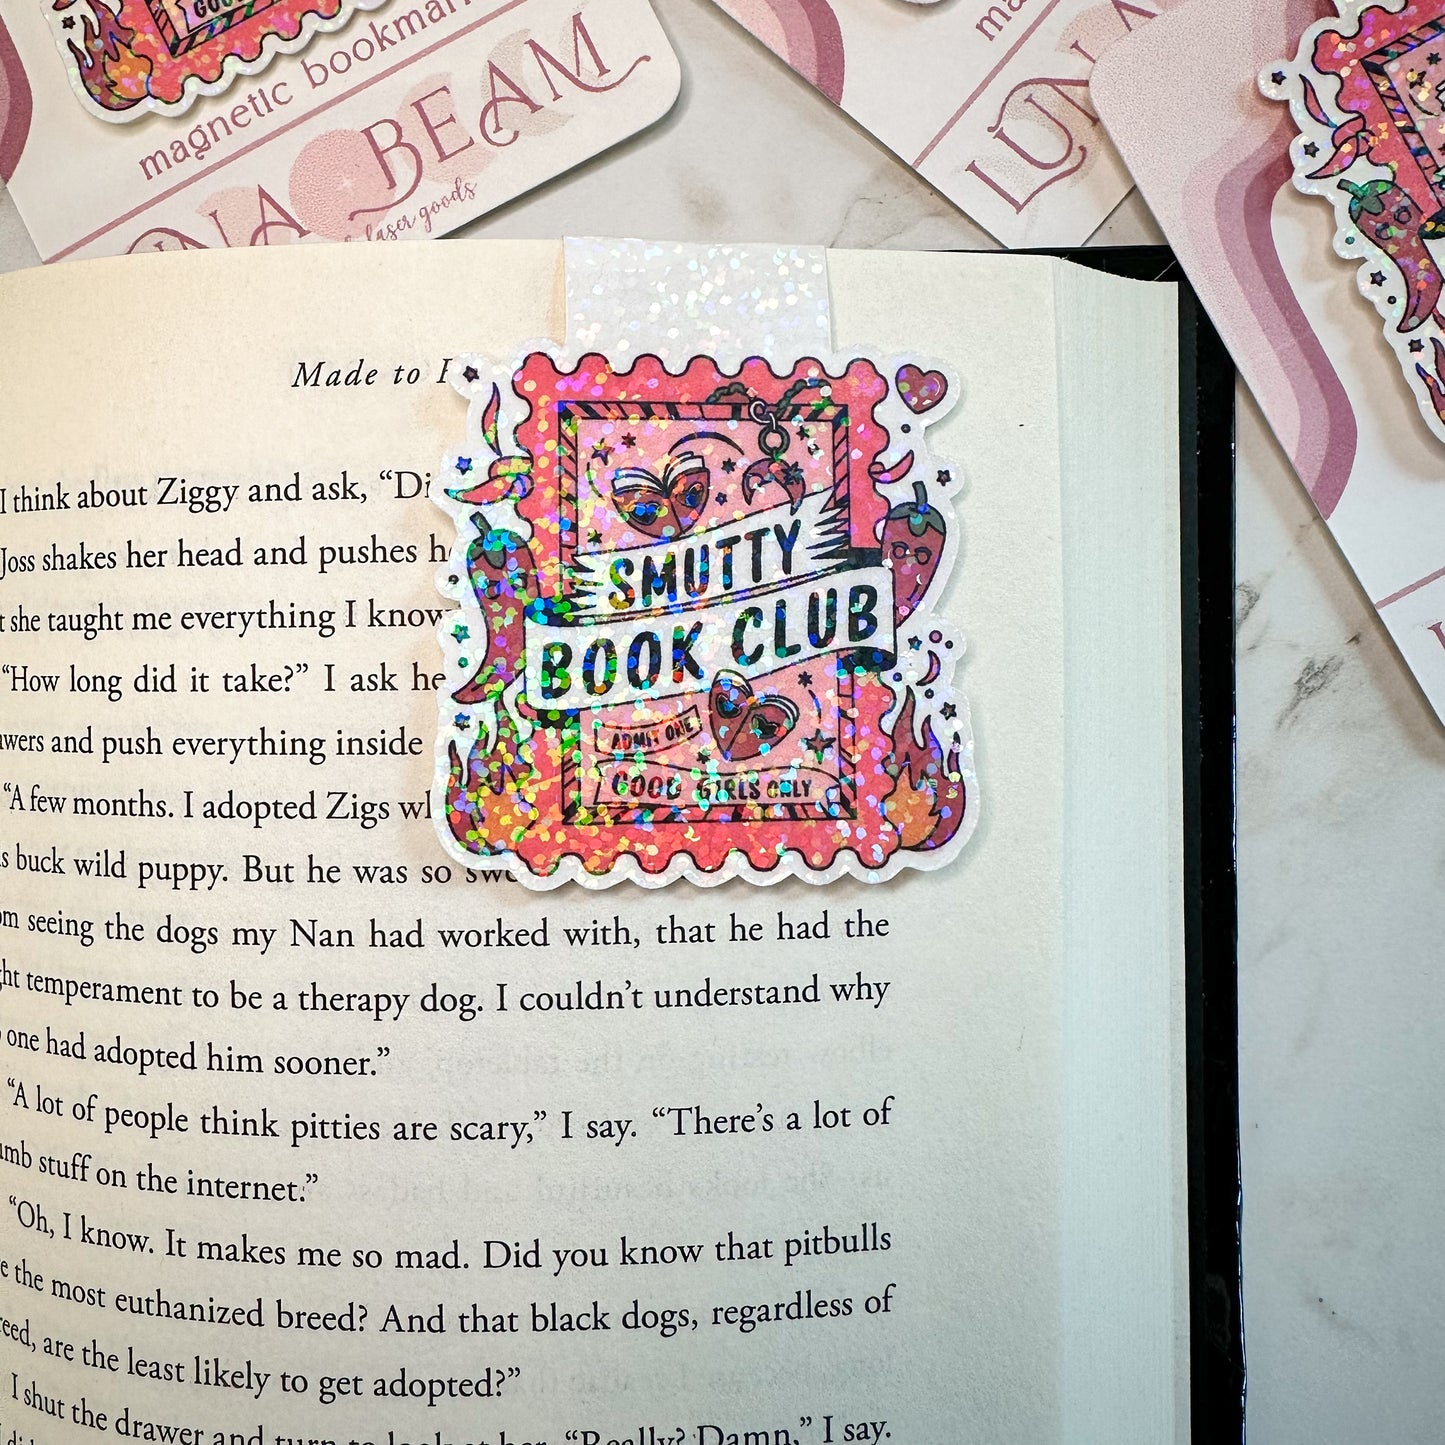 GOOD
magnetic bookmark
LUNA BEAM
laser goods
ma
LUNA
Made to
SMUTTY
BOOK CLUB
ADMIT ONE
GOOD GIRLS ONLY
I think about Ziggy and ask, “Di
Joss shakes her head and pushes h
she taught me everything I know
“How long did it take?” I ask he
and push everything inside
“A few months. I adopted Zigs wh
buck wild puppy. But he was so swe
seeing the dogs my Nan had worked with, that he had the
temperament to be a therapy dog. I couldn’t understand why
one had adopted him sooner.”
“A lot of people think pitties are scary,” I say. “There’s a lot of
stuff on the internet.”
“Oh, I know. It makes me so mad. Did you know that pitbulls
the most euthanized breed? And that black dogs, regardless of
are the least likely to get adopted?”
I shut the drawer and turn to look at her. “Really? Damn,” I say.